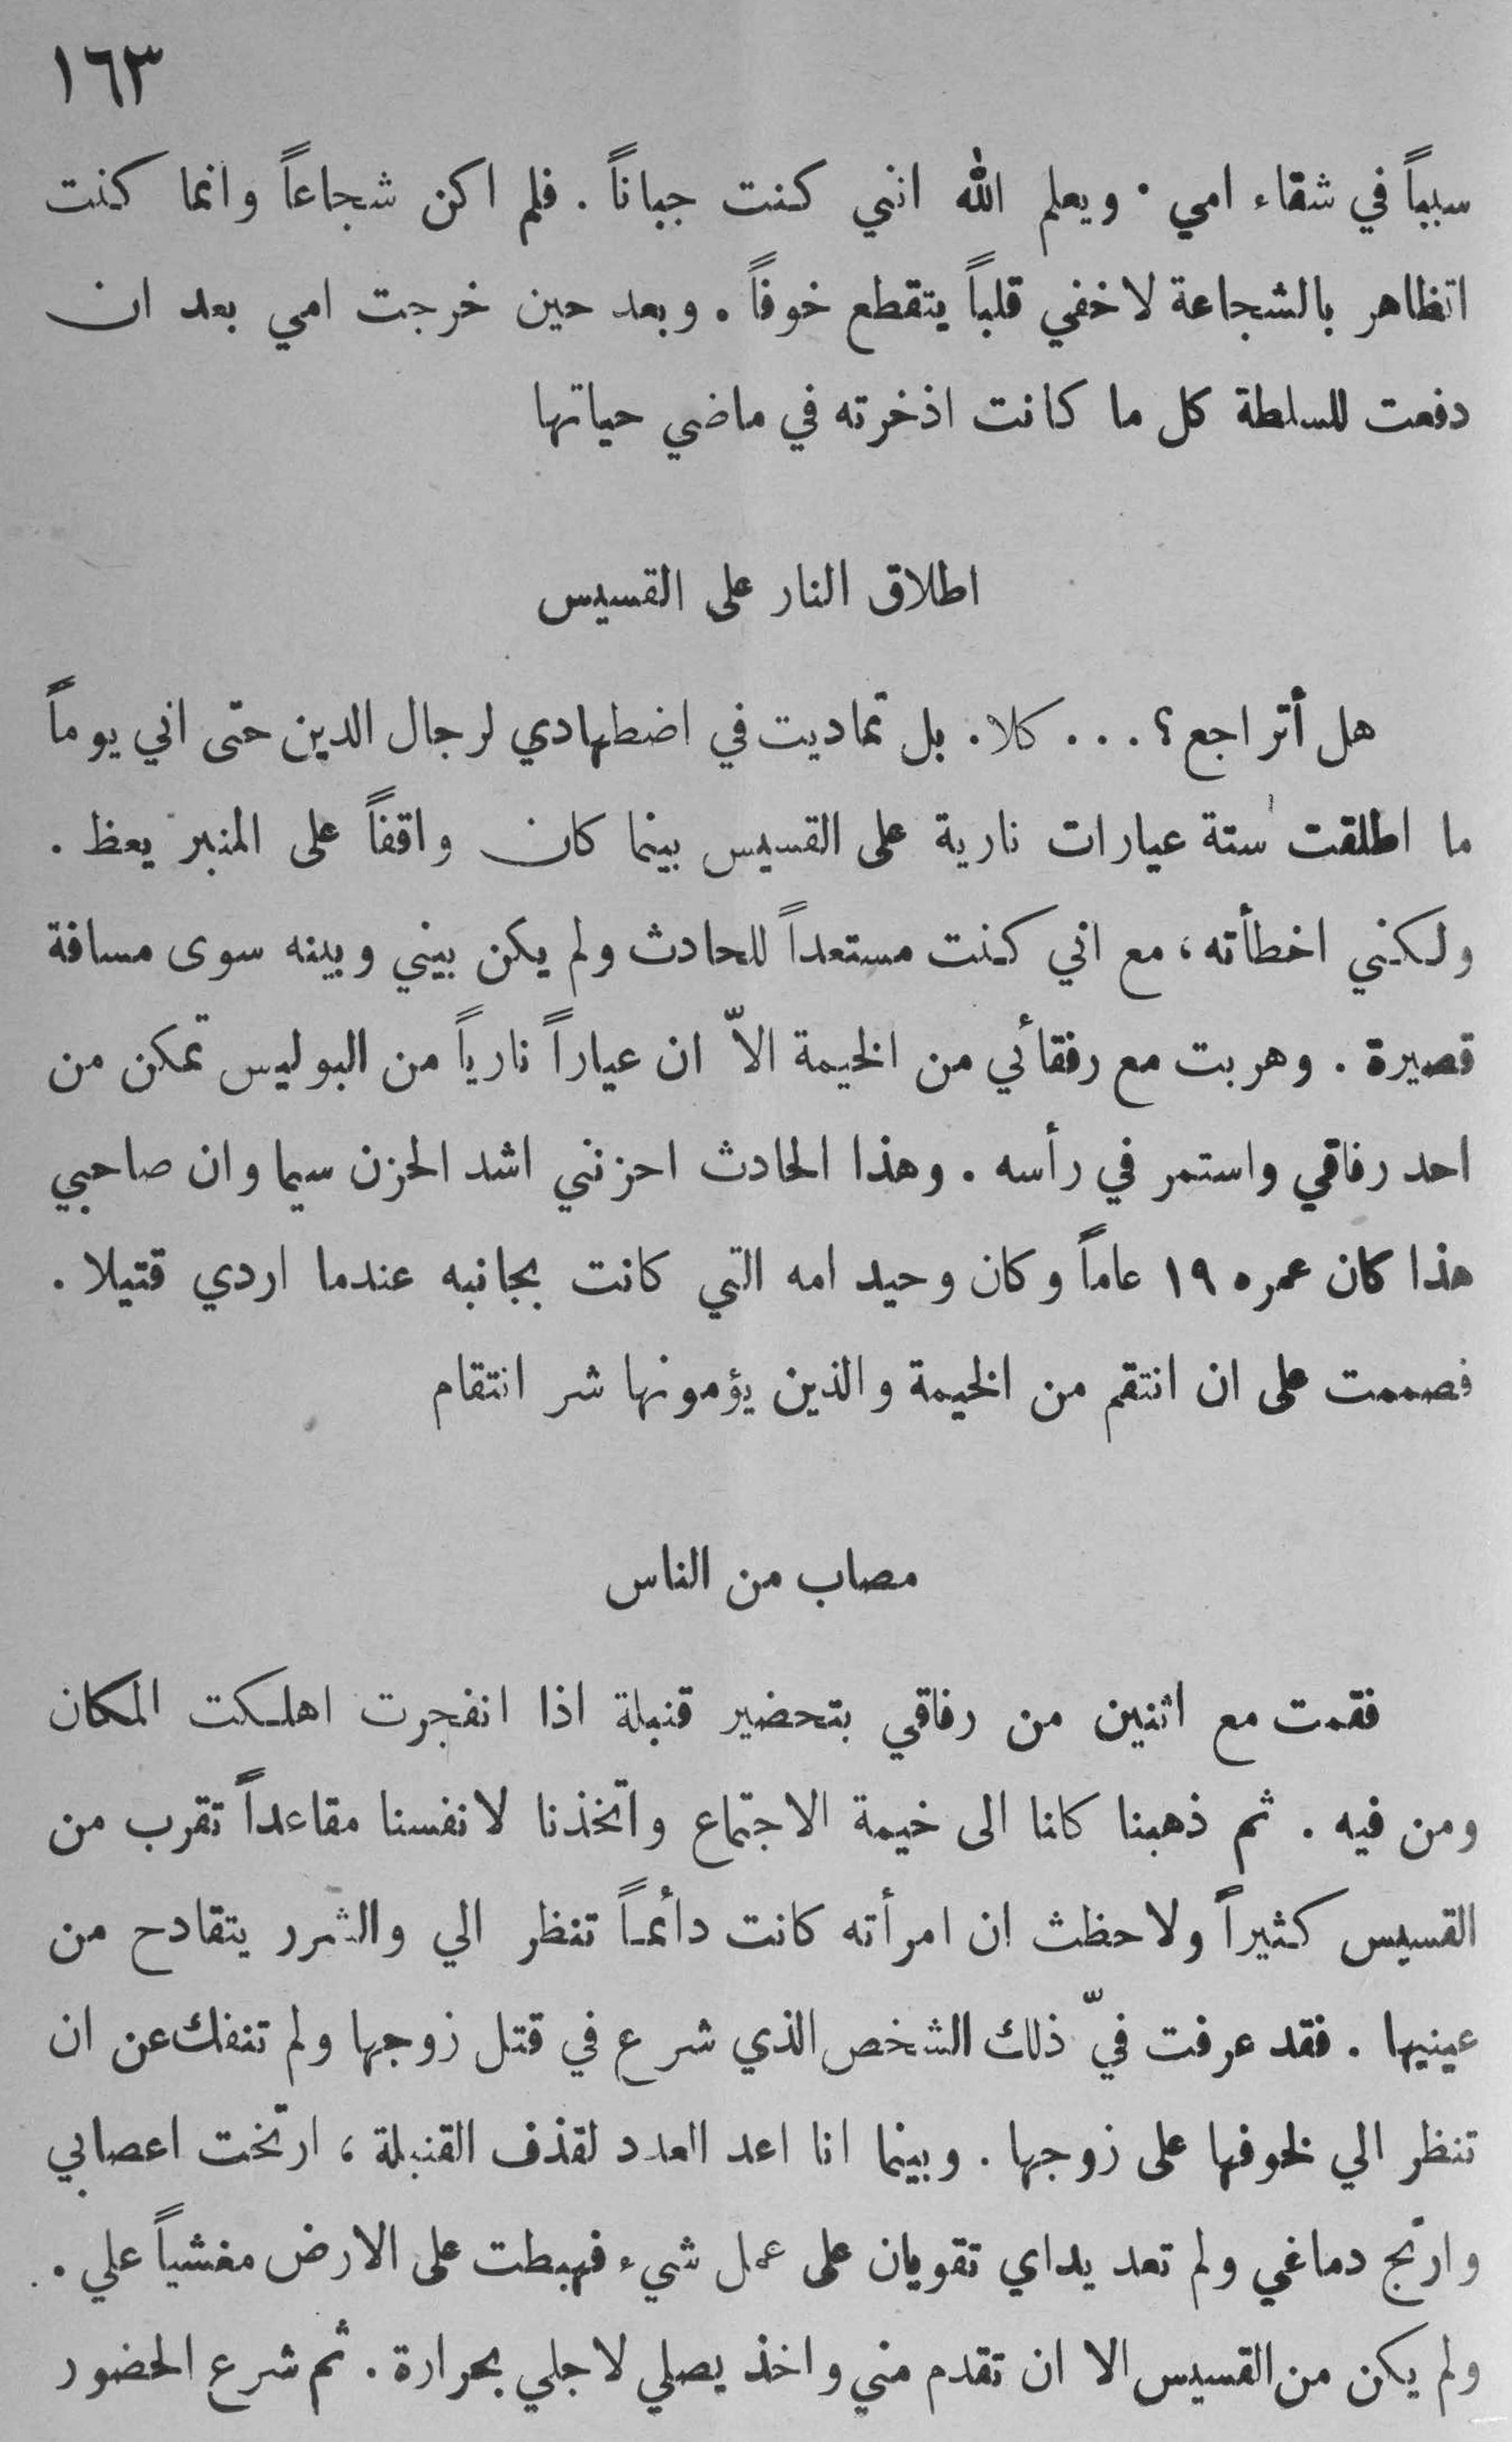 ١٦٣
سبباً في شقاء امي. ويعلم الله انني كنت جباناً. فلم اكن شجاعاً وانما كنت
اتظاهر بالشجاعة لاخفي قلباً يتقطع خوفاً. وبعد حين خرجت امي بعد ان
دفعت للسلطة كل ما كانت اذخرته في ماضي حياتها
اطلاق النار على القسيس
هل أتراجع؟... كلا. بل تماديت في اضطهادي لرجال الدين حتى اني يوماً
ما اطلقت ستة عيارات نارية على القسيس بينما كان واقفاً على المنبر يعظ.
ولكنني اخطأته، مع اني كنت مستعداً للحادث ولم يكن بيني وبينه سوى مسافة
قصيرة. وهربت مع رفقائي من الخيمة الاّ ان عياراً نارياً من البوليس تمكن من
احد رفاقي واستمر في رأسه. وهذا الحادث احزنني اشد الحزن سيما وان صاحبي
هذا كان عمره ١٩ عاماً وكان وحيد امه التي كانت بجانبه عندما اردي قتيلا.
فصممت على ان انتقم من الخيمة والذين يؤمونها شر انتقام
مصاب من الناس
فقمت مع اثنين من رفاقي بتحضير قنبلة اذا انفجرت اهلكت المكان
ومن فيه. ثم ذهبنا كانا الى خيمة الاجتماع واتخذنا لانفسنا مقاعداً تقرب من
القسيس كثيراً ولاحظت ان امرأته كانت دأئماً تنظر الي والشرر يتقادح من
عينيها. فقد عرفت فيّ ذلك الشخص الذي شرع في قتل زوجها ولم تنفك عن ان
تنظر الي لخوفها على زوجها. وبينما انا اعد العدد لقذف القنبلة، ارتخت اعصابي
وارتج دماغي ولم تعد يداي تقويان على عمل شيء فهبطت على الارض مغشياً علي.
ولم يكن من القسيس الا ان تقدم مني واخذ يصلي لاجلي بحرارة. ثم شرع الحضور